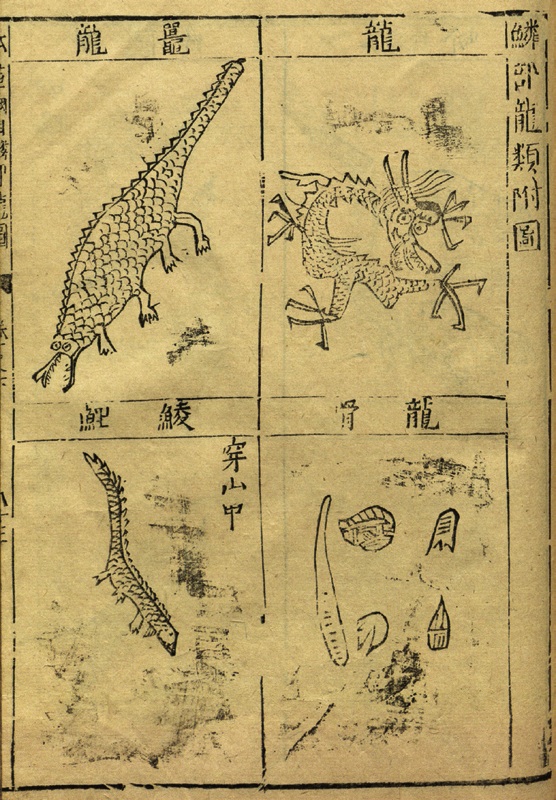 鱗部龍類附圖
龍
鼉龍
龍骨
鯪鯉
穿山甲
本草綱目